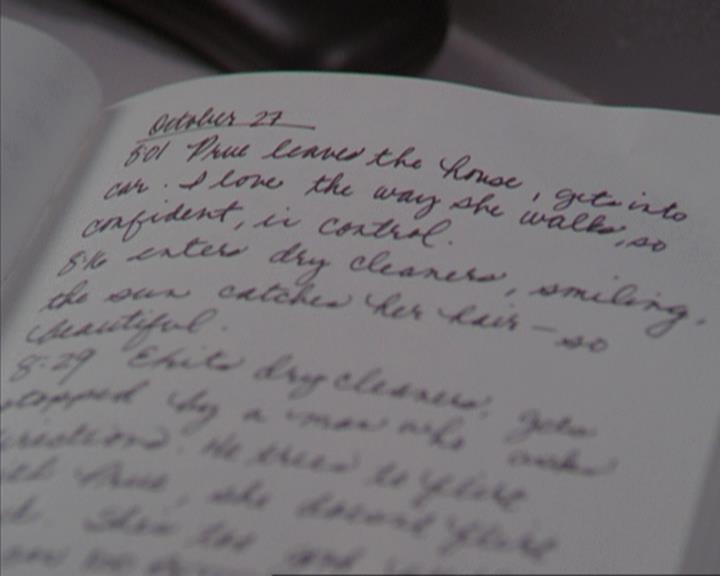 October 27
8:01 Prue leaves the house, gets into
car. I love the way she walks, so
confident, in control.
8:16 enters dry cleaners, smiling,
the sun catches her hair - so
beautiful.
8:29 Exits dry cleaners, gets
stopped by a man who asks
directions. He tries to flirt
with Prue, she doesn't flirt
She's too good